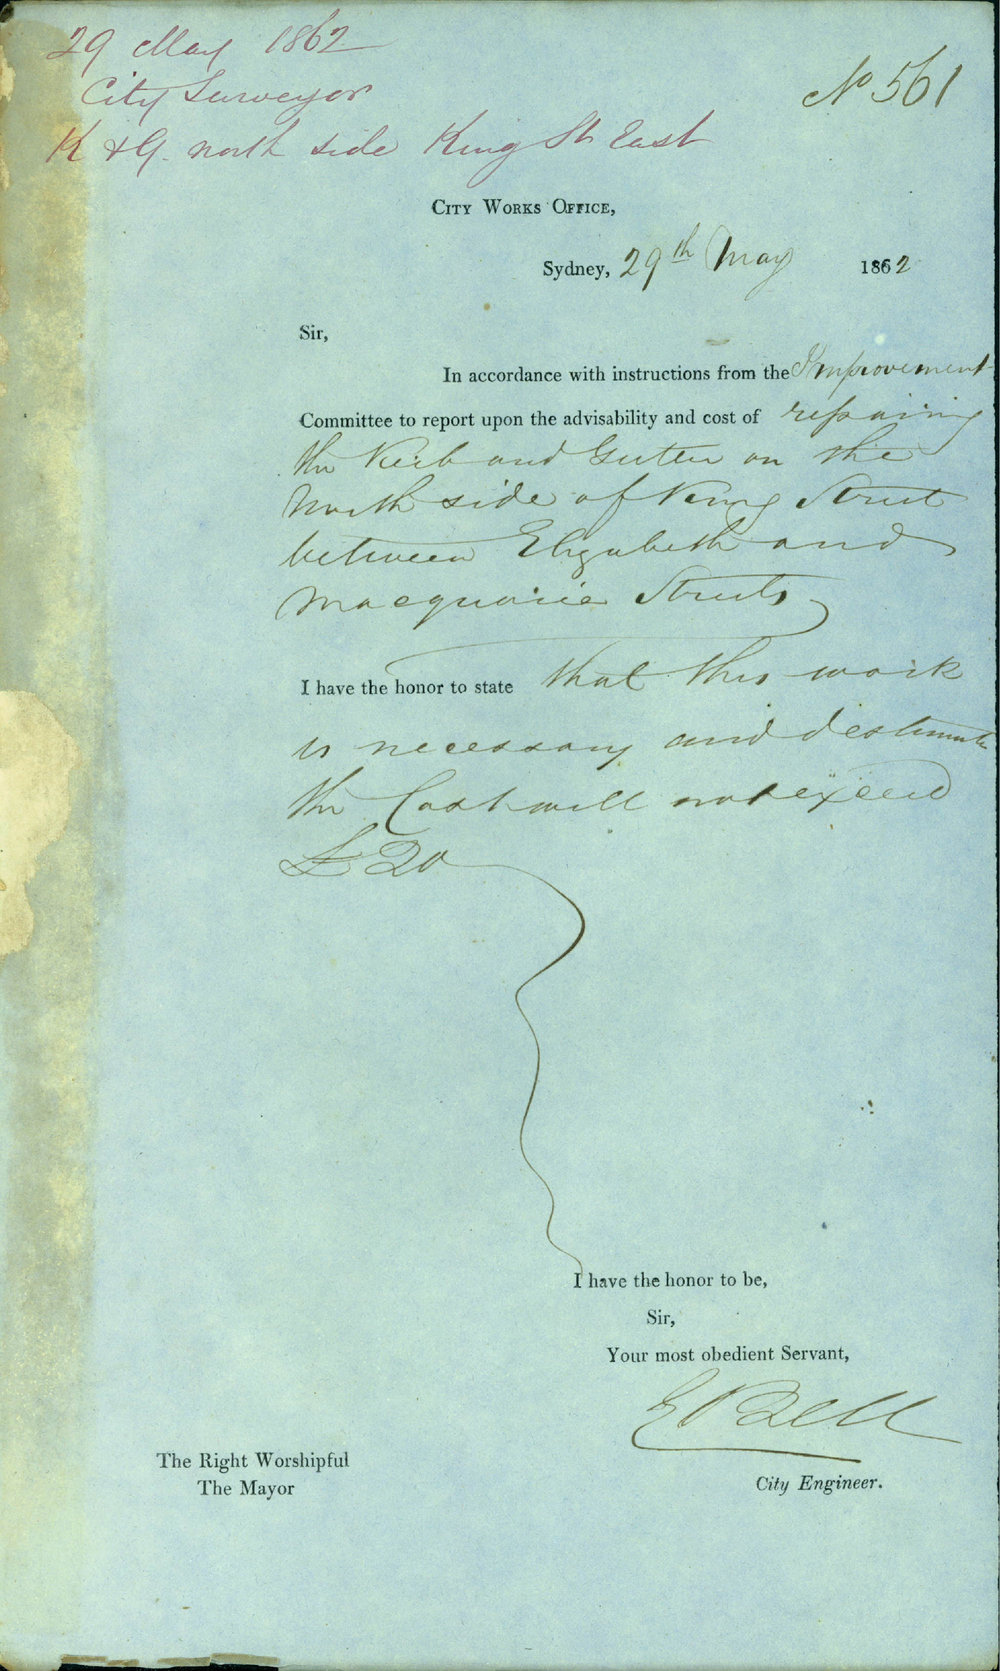 29 May 1862
City Surveyor
No 561
K & G. north side King St East
City Works Office,
Sydney, 29th May 1862
Sir,
In accordance with instructions from the Improvement
Committee to report upon the advisability and cost of repairing
the Kerb and Gutter on the
North side of King Street
between Elizabeth and
Macquarie Streets
I have the honor to state that this work
is necessary and I estimate
the Cost will not exceed
£20
I have the honor to be,
Sir,
Your most obedient Servant,
E Bell
The Right Worshipful
The Mayor
City Engineer.